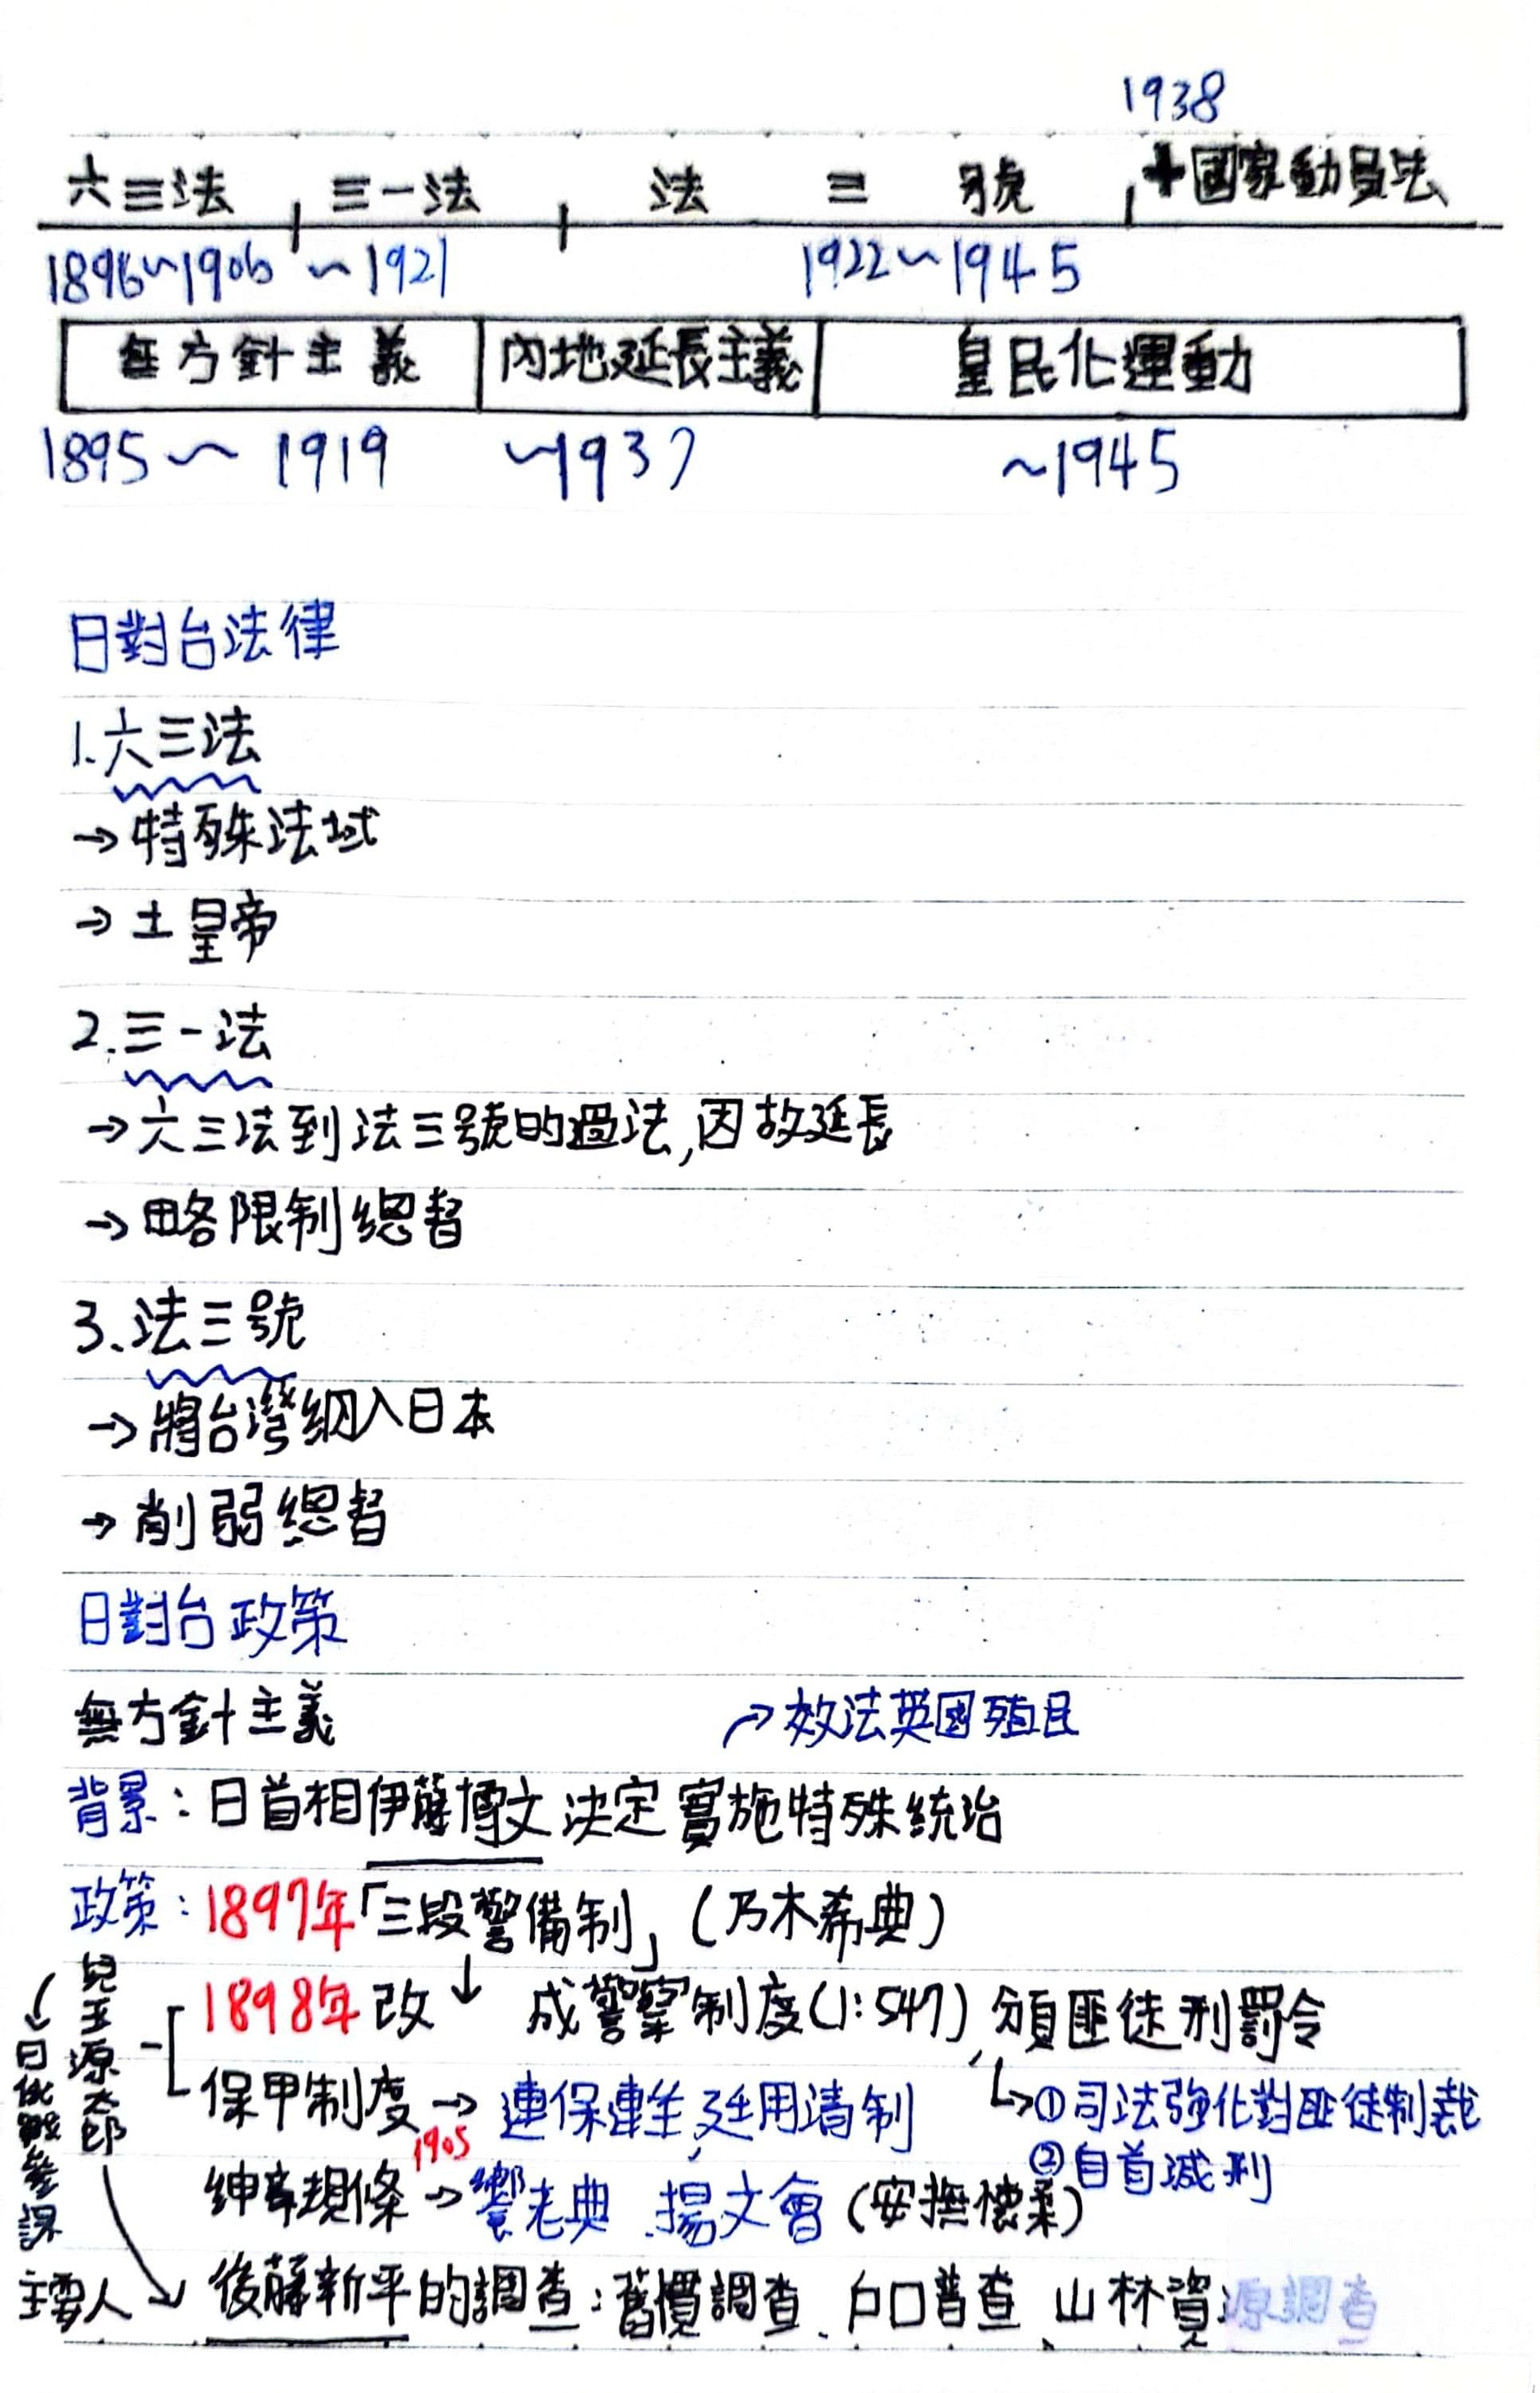 1938
六三法 三一法 法 三 號 +國家動員法
1896~1906 ~1921 1922~1945
無方針主義 內地延長主義 皇民化運動
1895~1919 ~1937 ~1945
日對台法律
1.六三法
→特殊法域
→土皇帝
2.三一法
→六三法到法三號的過法,因故延長
→略限制總督
3、法三號
→將台灣納入日本
→削弱總督
日對台政策
無方針主義 →效法英國殖民
背景:日首相伊藤博文決定實施特殊統治
政策:1897年「三段警備制」(乃木希典)
兒玉源太郎
→日俄戰參謀
1898年改↓ 成警察制度(1:547),頒匪徒刑罰令
保甲制度→連保連坐,延用清制 ↳①司法強化對匪徒制裁
1905 ②自首減刑
紳章規條→饗老典、揚文會(安撫懷柔)
主要人↘後藤新平的調查:舊慣調查、戶口普查 山林資源調查